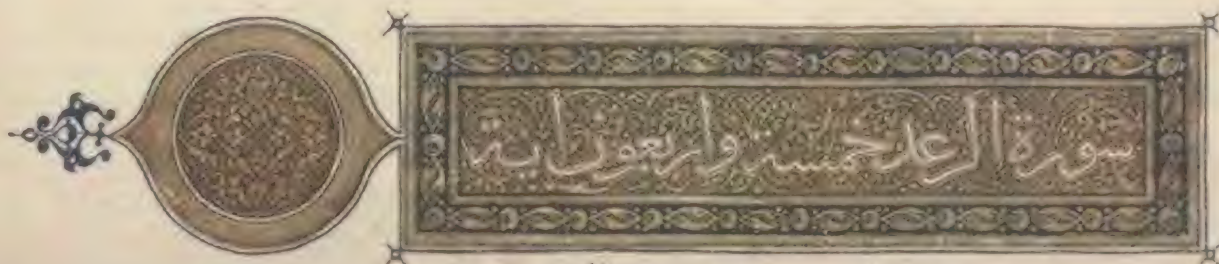 سورة الرعد خمسة واربعون اية